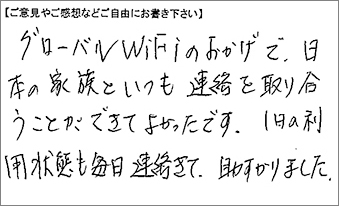 【ご意見やご感想などご自由にお書き下さい】
グローバルWiFiのおかげで、日
本の家族といつも連絡を取り合
うことができてよかったです。1日の利
用状態も毎日連絡きて、助すかりました。